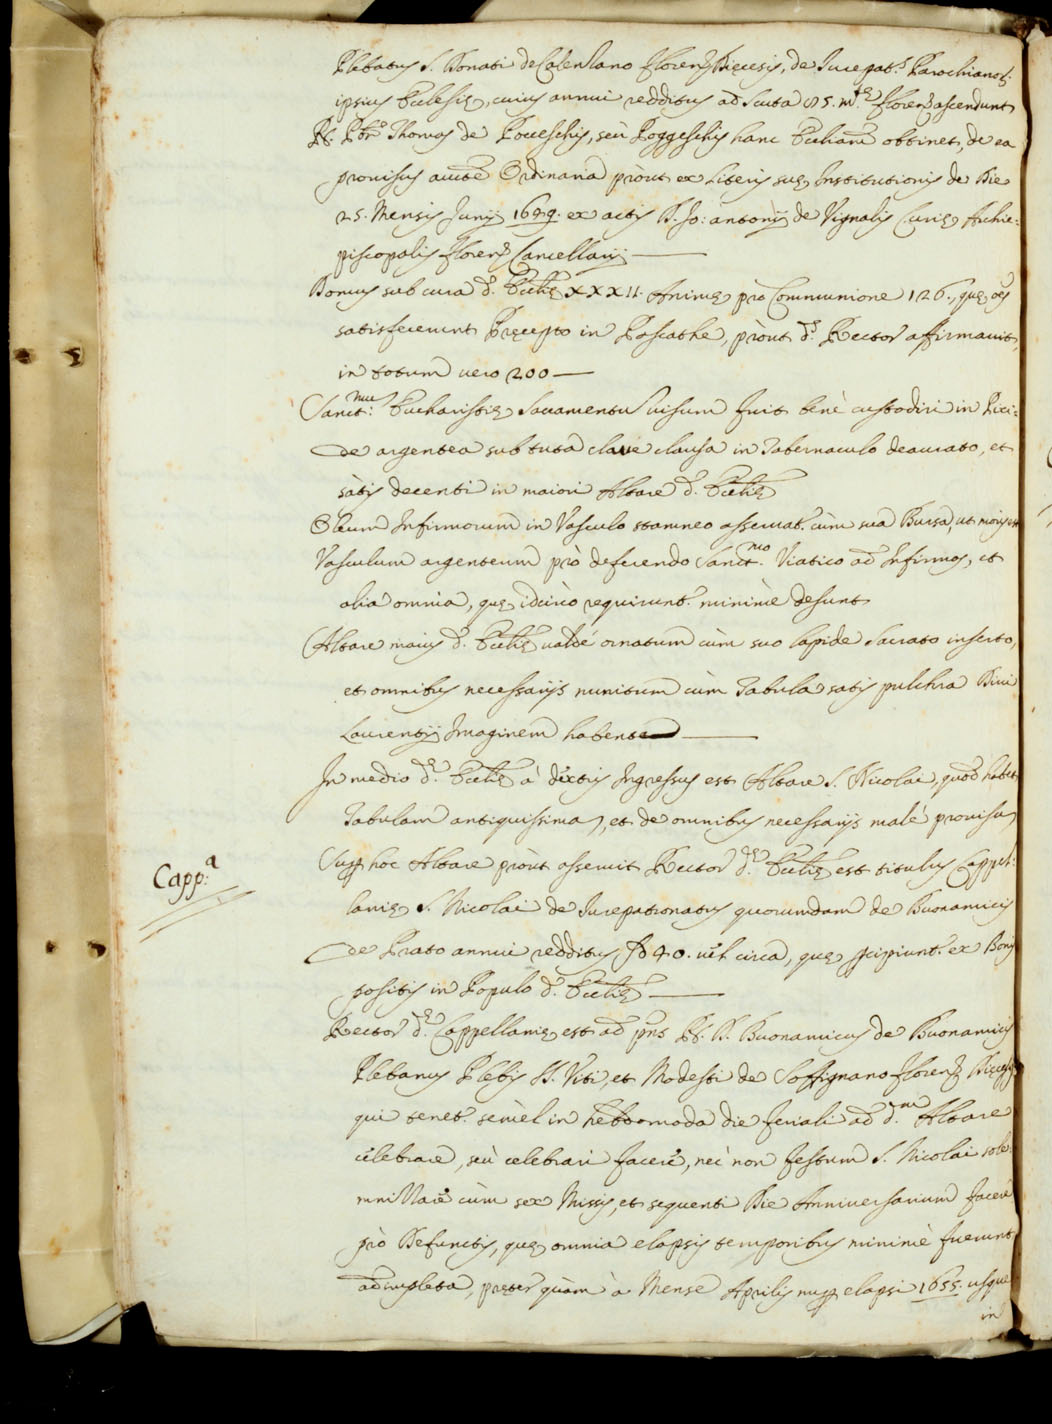 Plebatus S. Donati de Calenzano Floren: Dięcesis, de Jurepat:s Parochianor:
ipsius Ecclesię, cuius annui redditus ad Scuta 85. m:tę Floren: ascendunt
R. Pbr Thomas de Pocceschis, seù Poggeschis hanc Eccliam obtinet, de ea
provisus auctte Ordinaria pròut ex Literis suę Institutionis de Die
25. Mensis Junij 1649. ex actis D. Jo: Antonij de Vignalis Curię Archie=
piscopalis Floren: Cancellarij
Domus sub cura d: Ecclię XXXII. Animę prò Communione 126., quę oes
satisfecerunt Pręcepto in Paschathe, pròut d:s Rector affirmavit,
in totum vero 200
Sanct:mu Eucharistię Sacramentu visum fuit benè custodiri in Pixi=
de argentea sub tuta clave clausa in Tabernaculo deaurato, et
sàtis decenti in maiori Altare d: Ecclię
Oleum Infirmorum in Vasculo stamneo asservat: cùm sua Bursa, ut moris est
Vasculum argenteum prò deferendo Sanct:mo Viatico ad Infirmos, et
alia omnia, quę idcircò requirunt: minimè desunt
Altare maius d: Ecclię valdé ornatum cùm suo lapide Sacrato inserto,
et omnibus necessarijs munitum cùm Tabula satis pulchra Divi
Laurentij Imaginem habente
In medio d:ę Ecclię à dextris Ingressus est Altare S. Nicolai, quod habet
Tabulam antiquissima, et de omnibus necessarijs malé provisu
Sup hoc Altare pròut asseruit Rector d:ę Ecclię est titulus Cappel=
Capp:a
lanię S. Nicolai de Jurepatronatus quorumdam de Buonamicis
de Prato annui redditus 40. vel circa, quę pcipiunt: ex Bonis
positis in Populo d: Ecclię
Rector d:ę Cappellanię est ad pns R. D. Buonamicus de Buonamicis
Plebanus Plebis SS. Viti, et Modesti de Soffignano Floren: Dięcesis
qui tenet: semèl in hebdomoda die feriali ad d:m Altare
celebrare, seù celebrari facere, nec non festum S. Nicolai sole=
mnizare cùm sex Missis, et sequenti Die Anniversarium facere
prò Defunctis, quę omnia elapsis temporibus minimè fuerunt
adimpleta, pręter quàm à Mense Aprilis nup elapsi 1655. usque
in